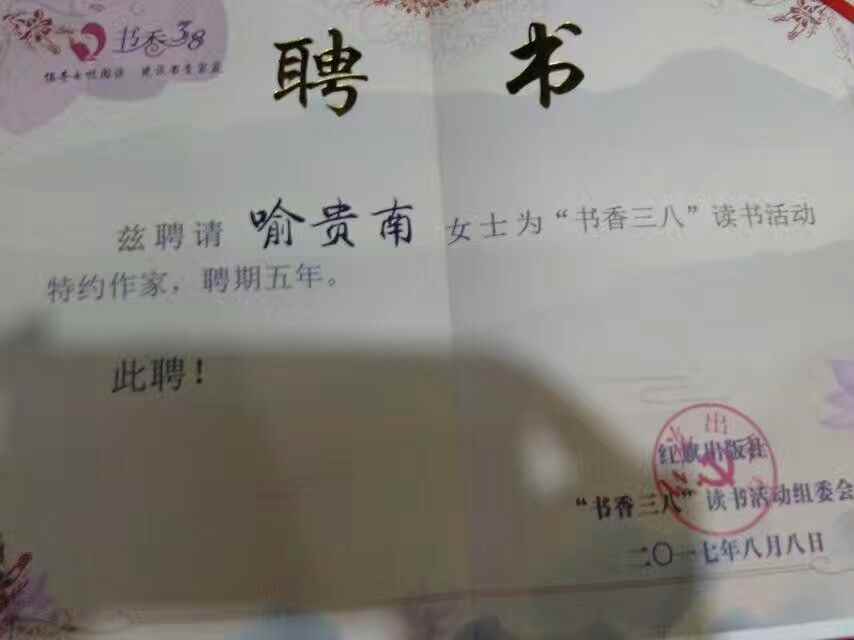 书香38
倡导女性阅读 建设书香家庭
聘书
兹聘请 喻贵南 女士为“书香三八”读书活动
特约作家，聘期五年。
此聘！
红旗出版社
“书香三八”读书活动组委会
二〇一七年八月八日